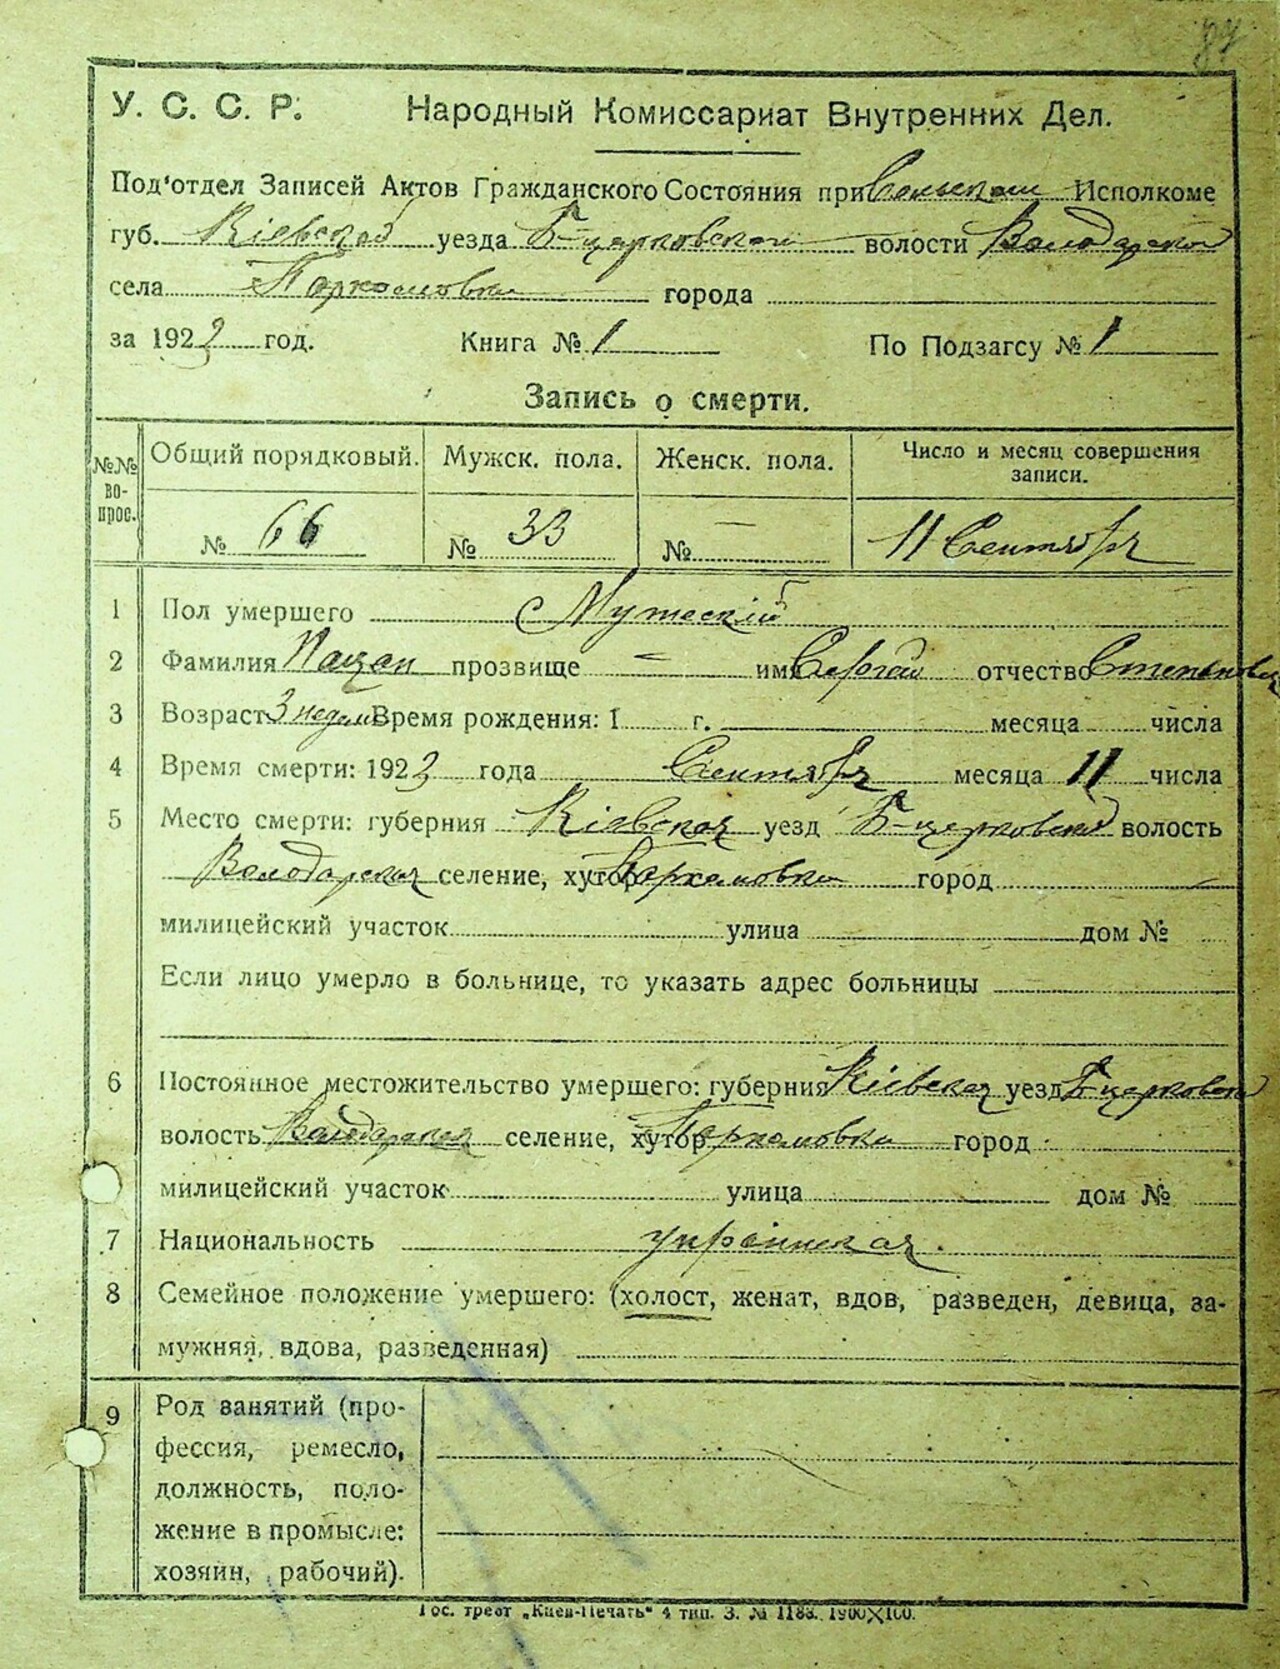 У. С. С. Р. Народный Комиссариат Внутренних Дел.
Под'отдел Записей Актов Гражданского Состояния при Сельском Исполкоме
губ. Кіевской уезда Б-церковской волости Володарской
села Пархомовка города
за 1923 год. Книга № 1 По Подзагсу № 1
Запись о смерти.
№№ во-прос. Общий порядковый. Мужск. пола. Женск. пола. Число и месяц совершения записи.
№ 66 № 33 № — 11 Сентября
1 Пол умершего Мужескій
2 Фамилия Пацан прозвище — имя Сергей отчество Степанович
3 Возраст 3 недели Время рождения: 1 г. месяца числа
4 Время смерти: 1923 года Сентября месяца 11 числа
5 Место смерти: губерния Кіевская уезд Б-церковской волость
Володарская селение, хутор Пархомовка город
милицейский участок улица дом №
Если лицо умерло в больнице, то указать адрес больницы
6 Постоянное местожительство умершего: губерния Кіевская уезд Б-церковской
волость Володарская селение, хутор Пархомовка город
милицейский участок улица дом №
7 Национальность украинская.
8 Семейное положение умершего: (холост, женат, вдов, разведен, девица, за-
мужняя, вдова, разведенная)
9 Род занятий (про-
фессия, ремесло,
должность, поло-
жение в промысле:
хозяин, рабочий).
Гос. трест „Киев-Печать" 4 тип. З. № 1183. 1900×100.